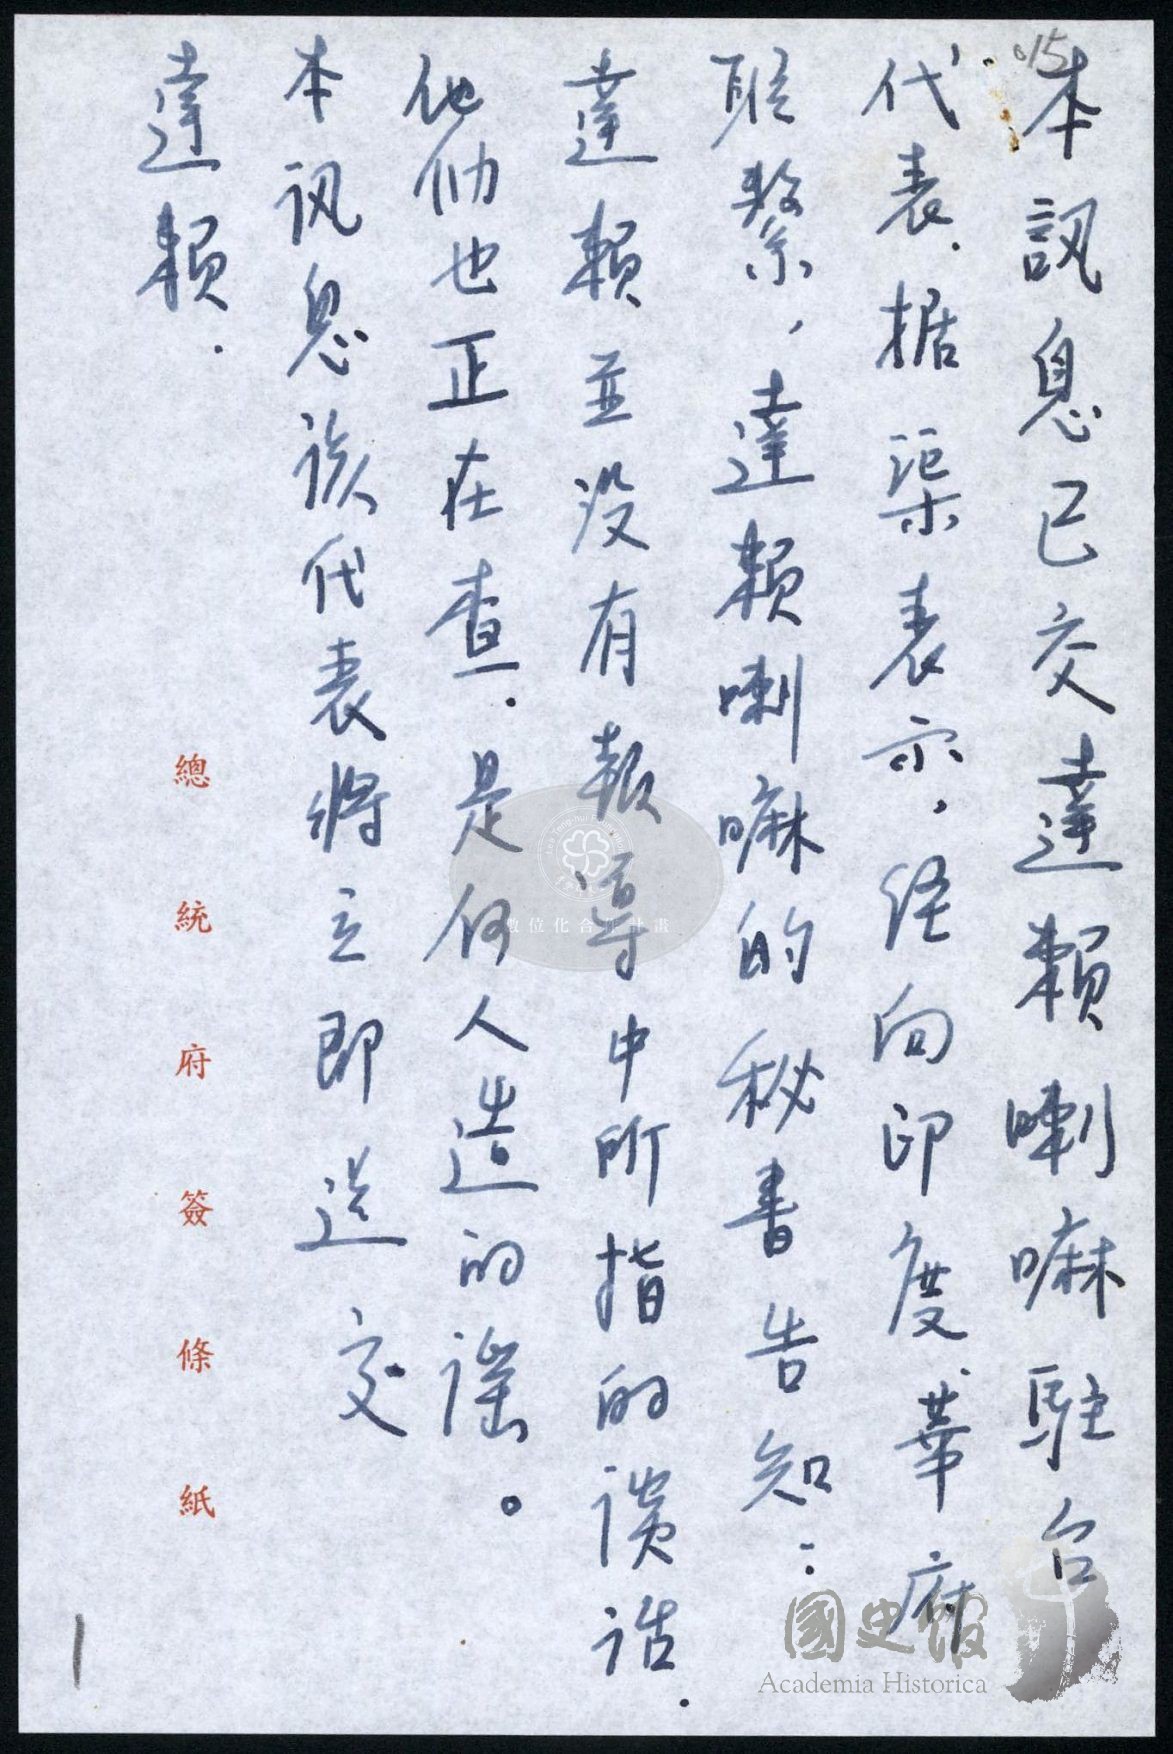 015
本訊息已交達賴喇嘛駐台
代表.据渠表示,经向印度、華府
联繫,達賴喇嘛的秘書告知:
達賴並没有報導中所指的談话.
他们也正在查.是何人造的谣。
本讯息该代表將立即送交
達賴.
總統府簽條紙
數位化合作計畫
國史館
Academia Historica